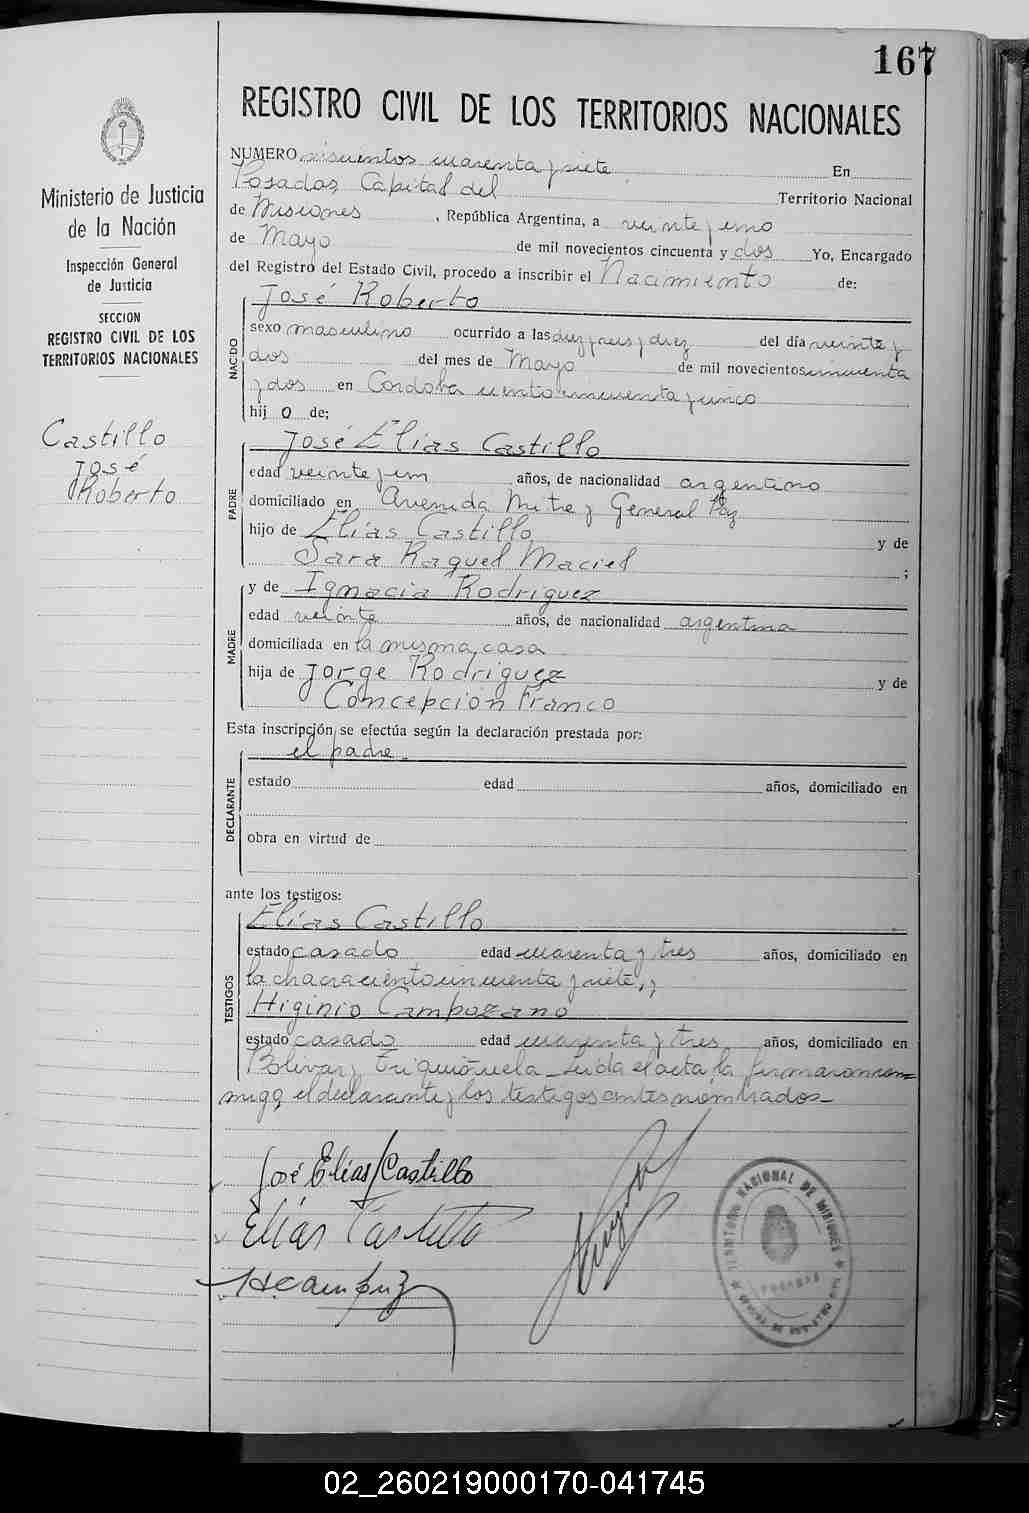 167
REGISTRO CIVIL DE LOS TERRITORIOS NACIONALES
Ministerio de Justicia
de la Nación
Inspección General
de Justicia
SECCION
REGISTRO CIVIL DE LOS
TERRITORIOS NACIONALES
Castillo
José
Roberto
NUMERO siscuentos cuarenta y siete En
Posadas Capital del Territorio Nacional
de Misiones, República Argentina, a veinte y uno
de Mayo de mil novecientos cincuenta y dos Yo, Encargado
del Registro del Estado Civil, procedo a inscribir el Nacimiento de:
NACIDO
José Roberto
sexo masculino ocurrido a las diez y seis y diez del día veinte y
dos del mes de Mayo de mil novecientos cincuenta
y dos en Cordoba ciento cincuenta y cinco
hij o de;
PADRE
José Elías Castillo
edad veinte y un años, de nacionalidad argentino
domiciliado en Avenida Mitre y General Paz
hijo de Elías Castillo y de
Sara Raquel Maciel ;
MADRE
y de Ignacia Rodriguez
edad veinte años, de nacionalidad argentina
domiciliada en la misma casa
hija de Jorge Rodriguez y de
Concepción Franco
Esta inscripción se efectúa según la declaración prestada por:
DECLARANTE
el padre.
estado edad años, domiciliado en
obra en virtud de
ante los testigos:
TESTIGOS
Elías Castillo
estado casado edad cuarenta y tres años, domiciliado en
la chacra ciento cincuenta y siete, y
Higinio Campozano
estado casado edad cuarenta y tres años, domiciliado en
Bolivar y Leida el acta, la firmaron con-
migo, el declarante y los testigos antes nombrados-
José Elías Castillo
Elías Castillo
TERRITORIO NACIONAL DE MISIONES
POSADAS
02_260219000170-041745